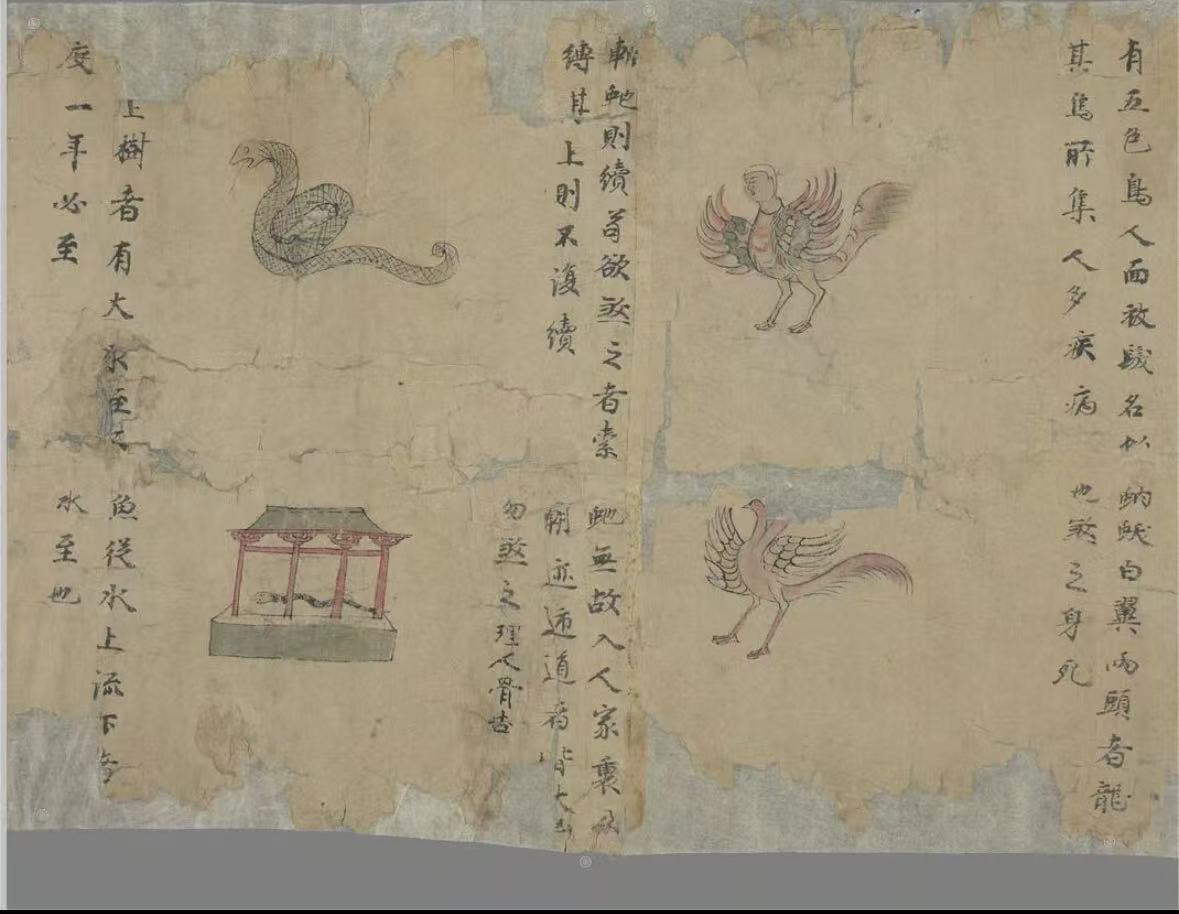 有五色鳥人面被髮名
其鳥所集人多疾病
斬虵則續苟欲煞之者索
縛其上則不復續
上樹者有大水至
度一年必至
白翼兩頭者龍
也煞之身死
虵無故入人家裏及
道者皆大凶
勿煞之理人骨吉
魚從水上流下者
水至也